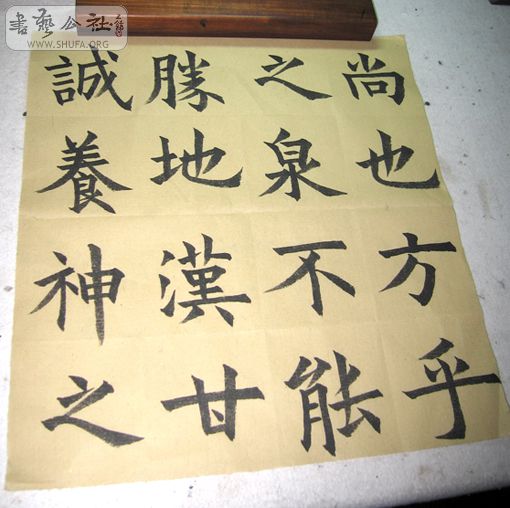 書藝公社
WWW.SHUFA.ORG
誠養神之
勝地漢甘
之泉不能
尚也方乎